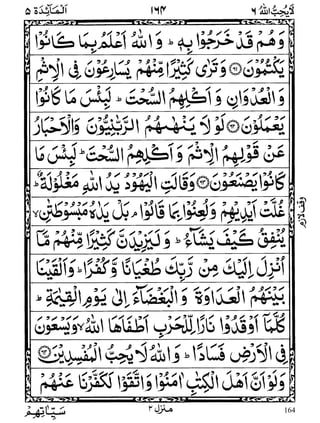 لَا يُحِبُّ اللهُ ٦ ١٦٤ اَلْمَآئِدَة ٥
وَهُمْ قَدْ خَرَجُوْا بِهٖ ؕ وَاللّٰهُ اَعْلَمُ بِمَا كَانُوْا
يَكْتُمُوْنَ ﴿۶۱﴾ وَتَرٰى كَثِيْرًا مِّنْهُمْ يُسَارِعُوْنَ فِى الْاِثْمِ
وَالْعُدْوَانِ وَاَكْلِهِمُ السُّحْتَ ؕ لَبِئْسَ مَا كَانُوْا
يَعْمَلُوْنَ ﴿۶۲﴾ لَوْلَا يَنْهٰىهُمُ الرَّبّٰنِيُّوْنَ وَالْاَحْبَارُ
عَنْ قَوْلِهِمُ الْاِثْمَ وَاَكْلِهِمُ السُّحْتَ ؕ لَبِئْسَ مَا
كَانُوْا يَصْنَعُوْنَ ﴿۶۳﴾ وَقَالَتِ الْيَهُوْدُ يَدُ اللّٰهِ مَغْلُوْلَةٌ ؕ
غُلَّتْ اَيْدِيْهِمْ وَلُعِنُوْا بِمَا قَالُوْا ۘ بَلْ يَدٰهُ مَبْسُوْطَتٰنِ ۙ
وقف لازم
يُنْفِقُ كَيْفَ يَشَآءُ ؕ وَلَيَزِيْدَنَّ كَثِيْرًا مِّنْهُمْ مَّاۤ
اُنْزِلَ اِلَيْكَ مِنْ رَّبِّكَ طُغْيَانًا وَّكُفْرًا ؕ وَاَلْقَيْنَا
بَيْنَهُمُ الْعَدَاوَةَ وَالْبَغْضَآءَ اِلٰى يَوْمِ الْقِيٰمَةِ ؕ
كُلَّمَاۤ اَوْقَدُوْا نَارًا لِّلْحَرْبِ اَطْفَاَهَا اللّٰهُ ۙ وَيَسْعَوْنَ
فِى الْاَرْضِ فَسَادًا ؕ وَاللّٰهُ لَا يُحِبُّ الْمُفْسِدِيْنَ ﴿۶۴﴾
وَلَوْ اَنَّ اَهْلَ الْكِتٰبِ اٰمَنُوْا وَاتَّقَوْا لَكَفَّرْنَا عَنْهُمْ
164 منزل ٢ سَيِّاٰتِهِمْ